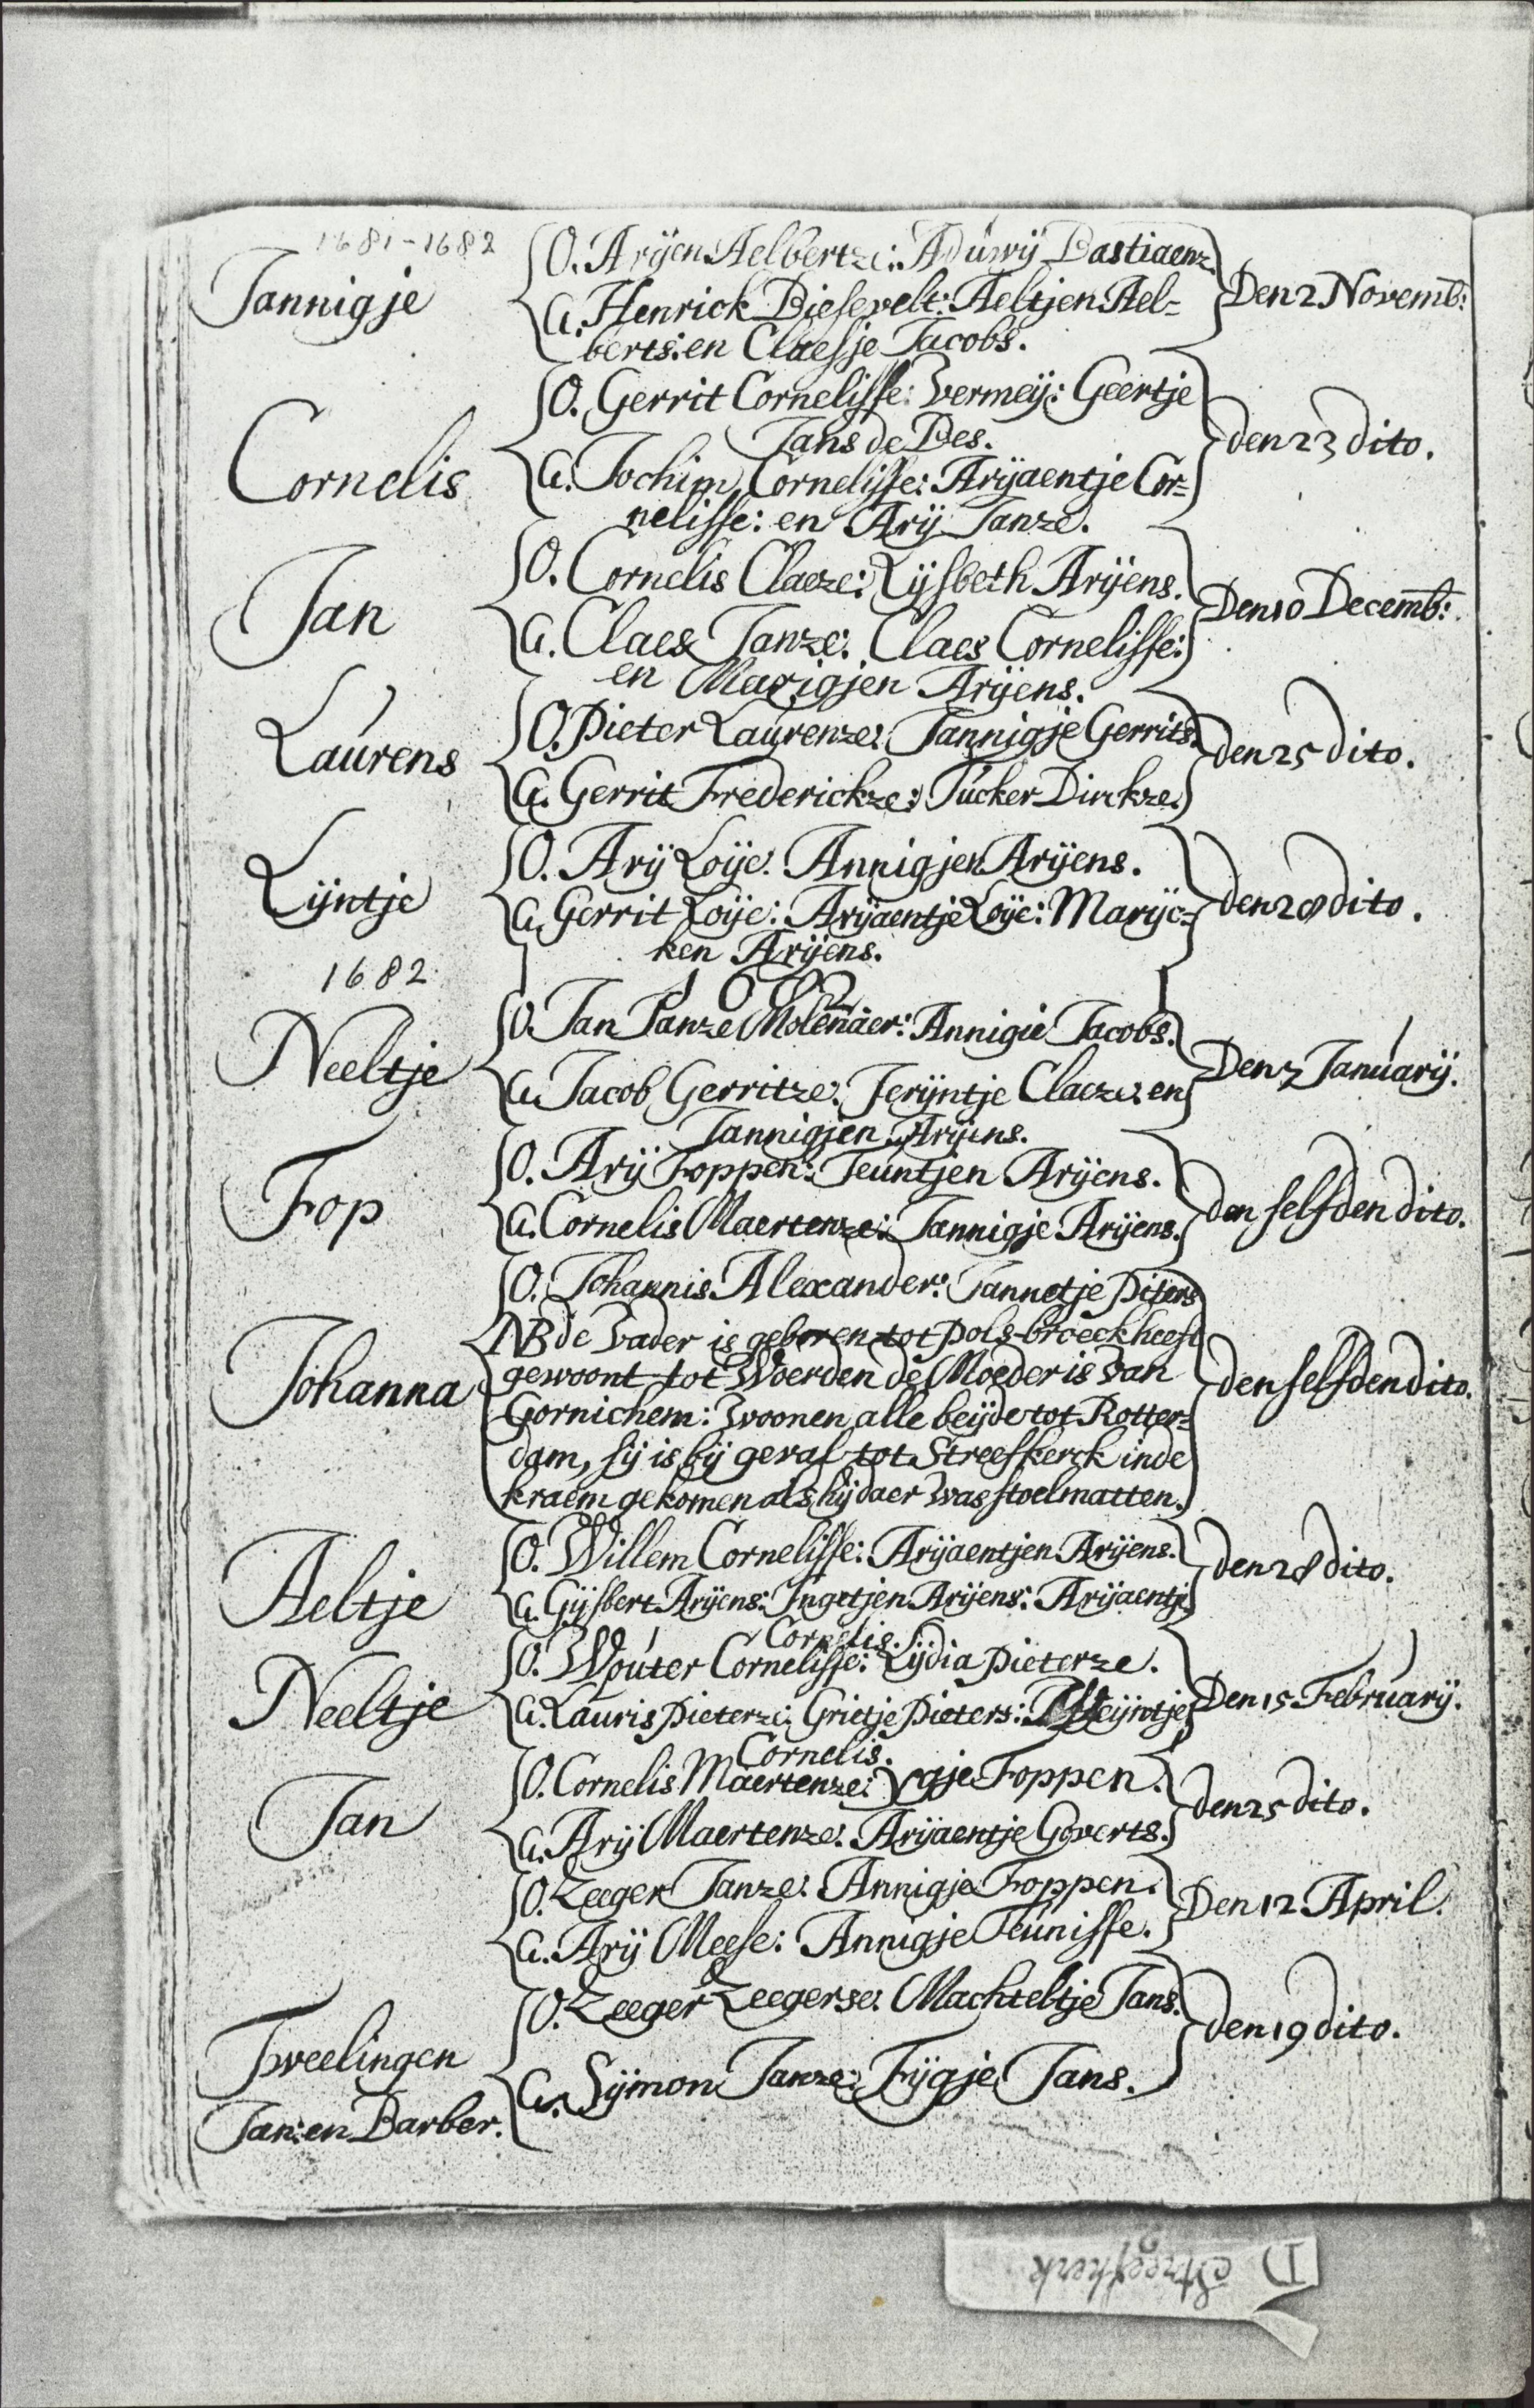 1681-1682
Jannigje
O. Arijen Aelbertze: Aduwij Bastiaenz.
G. Henrick Diesevelt: Aeltjen Ael-
berts: en Claesje Jacobs.
Den 2 Novemb:
Cornelis
O. Gerrit Cornelisse: Vermeij: Geertje
Jans de Bes.
G. Jochim Cornelisse: Arijaentje Cor-
nelisse: en Arij Janze.
den 23 dito.
Jan
O. Cornelis Claeze: Lijsbeth Arijens.
G. Claes Janze: Claes Cornelisse:
en Marigjen Arijens.
Den 10 Decemb:
Laurens
O. Pieter Laurenze: Jannigje Gerrits.
G. Gerrit Frederickze: Tucker Dirckze.
den 25 dito.
Lijntje
O. Arij Loije: Annigjen Arijens.
G. Gerrit Loije: Arijaentje Loije: Marijc-
ken Arijens.
den 28 dito.
1682
1682
Neeltje
O. Jan Janze Molenaer: Annigie Jacobs.
G. Jacob Gerritze: Ferijntje Claeze: en
Jannigjen Arijens.
Den 7 Januarij.
Fop
O. Arij Foppen: Teuntjen Arijens.
G. Cornelis Maertenze: Jannigje Arijens.
den selfden dito.
Johanna
O. Johannis Alexander: Jannetje Piters
NB de Vader is geboren tot Pols-broeck heeft
gewoont tot Woerden de Moeder is van
Gornichem: woonen alle beijde tot Rotter-
dam, sij is bij geval tot Streefkerck inde
kraem gekomen als hij daer was stoelmatten.
den selfden dito.
Aeltje
O. Willem Cornelisse: Arijaentjen Arijens.
G. Gijsbert Arijens: Ingetjen Arijens: Arijaentje
Cornelis.
den 28 dito.
Neeltje
O. Wouter Cornelisse: Lijdia Pieterze.
G. Lauris Pieterze: Grietje Pieters: Meijntje
Cornelis.
Den 15 February.
Jan
O. Cornelis Maertenze: Ygje Foppen.
G. Arij Maertenze: Arijaentje Goverts.
den 25 dito.
O. Zeeger Janze: Annigje Foppen.
G. Arij Meese: Annigje Teunisse.
Den 12 April.
Tweelingen
Jan: en Barber.
O. Zeeger Zeegerse: Machteltje Jans.
G. Sijmon Janze: Fijgje Jans.
den 19 dito.
D Streefkerk